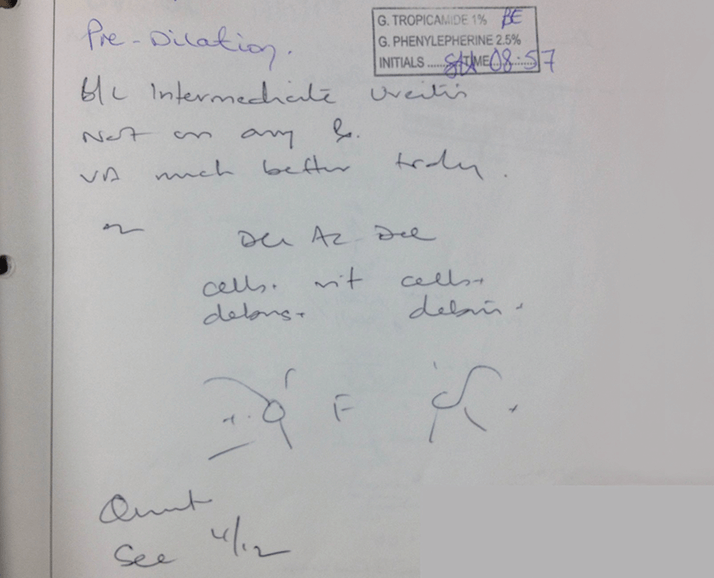 Pre-Dilation.
G. TROPICAMIDE 1% BE
G. PHENYLEPHERINE 2.5%
INITIALS ...... TIME 08:57
b/L Intermediate Uveitis
Not on any
VA much better today.
Del Az Del
cells + vit cells +
debris + debris +
F
Quiet
See 4/12